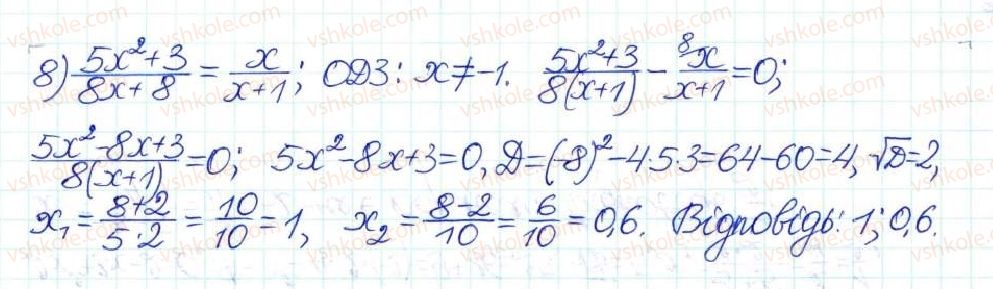 8) (5x²+3)/(8x+8) = x/(x+1); ОДЗ: x≠-1. (5x²+3)/(8(x+1)) - ⁸x/(x+1) = 0;
(5x²-8x+3)/(8(x+1)) = 0; 5x²-8x+3=0, D=(-8)²-4·5·3=64-60=4, √D=2,
x₁ = (8+2)/(5·2) = 10/10 = 1, x₂ = (8-2)/10 = 6/10 = 0,6. Відповідь: 1; 0,6.